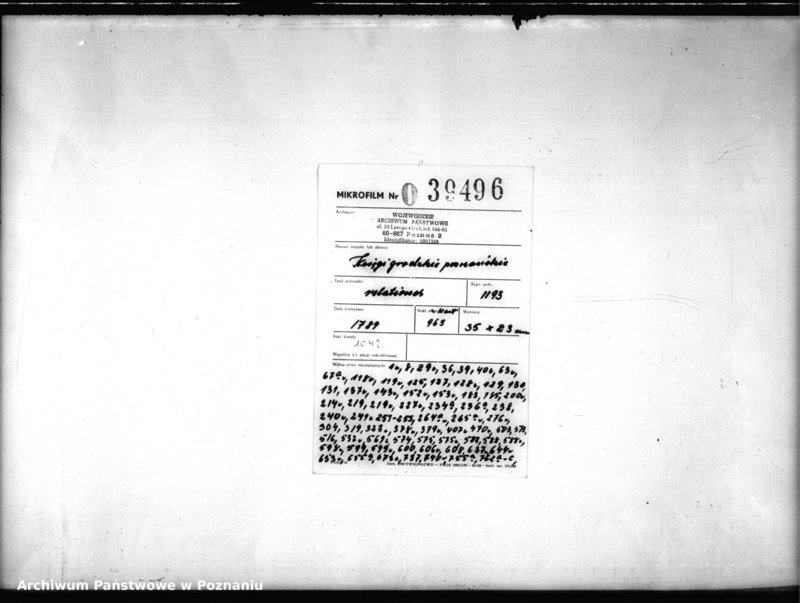 MIKROFILM Nr 0 39496
Archiwum:
WOJEWÓDZKIE
ARCHIWUM PAŃSTWOWE
ul. 23 Lutego 41/43, tel. 546-01
60-967 Poznań 9
Identyfikator:
Nazwa zespołu lub zbioru:
Księgi grodzkie poznańskie
Tytuł jednostki: Sygn. jedn.
relationes 1193
Daty krańcowe: Ilość kart Wymiary:
1789 963 35 x 23 cm
Ilość klatek:
1042
Wypełnia się stacji mikrofilmowej
Wykaz stron niezapisanych: 1v, 8, 29v, 36, 39, 40v, 63v,
67av, 118v, 119v, 125, 127, 128v, 129, 130,
131, 137v, 143v, 152v, 153v, 183, 185, 200v,
214v, 219, 219v, 227v, 234a, 236a, 238,
240v, 249v 251-253, 264a, 265av, 276v,
304, 319, 323v, 378v, 379v, 407v 470v,
516, 532v, 569v 574, 575, 575v
598v, 599v, 600, 606v, 608 637, 644v
Archiwum Państwowe w Poznaniu